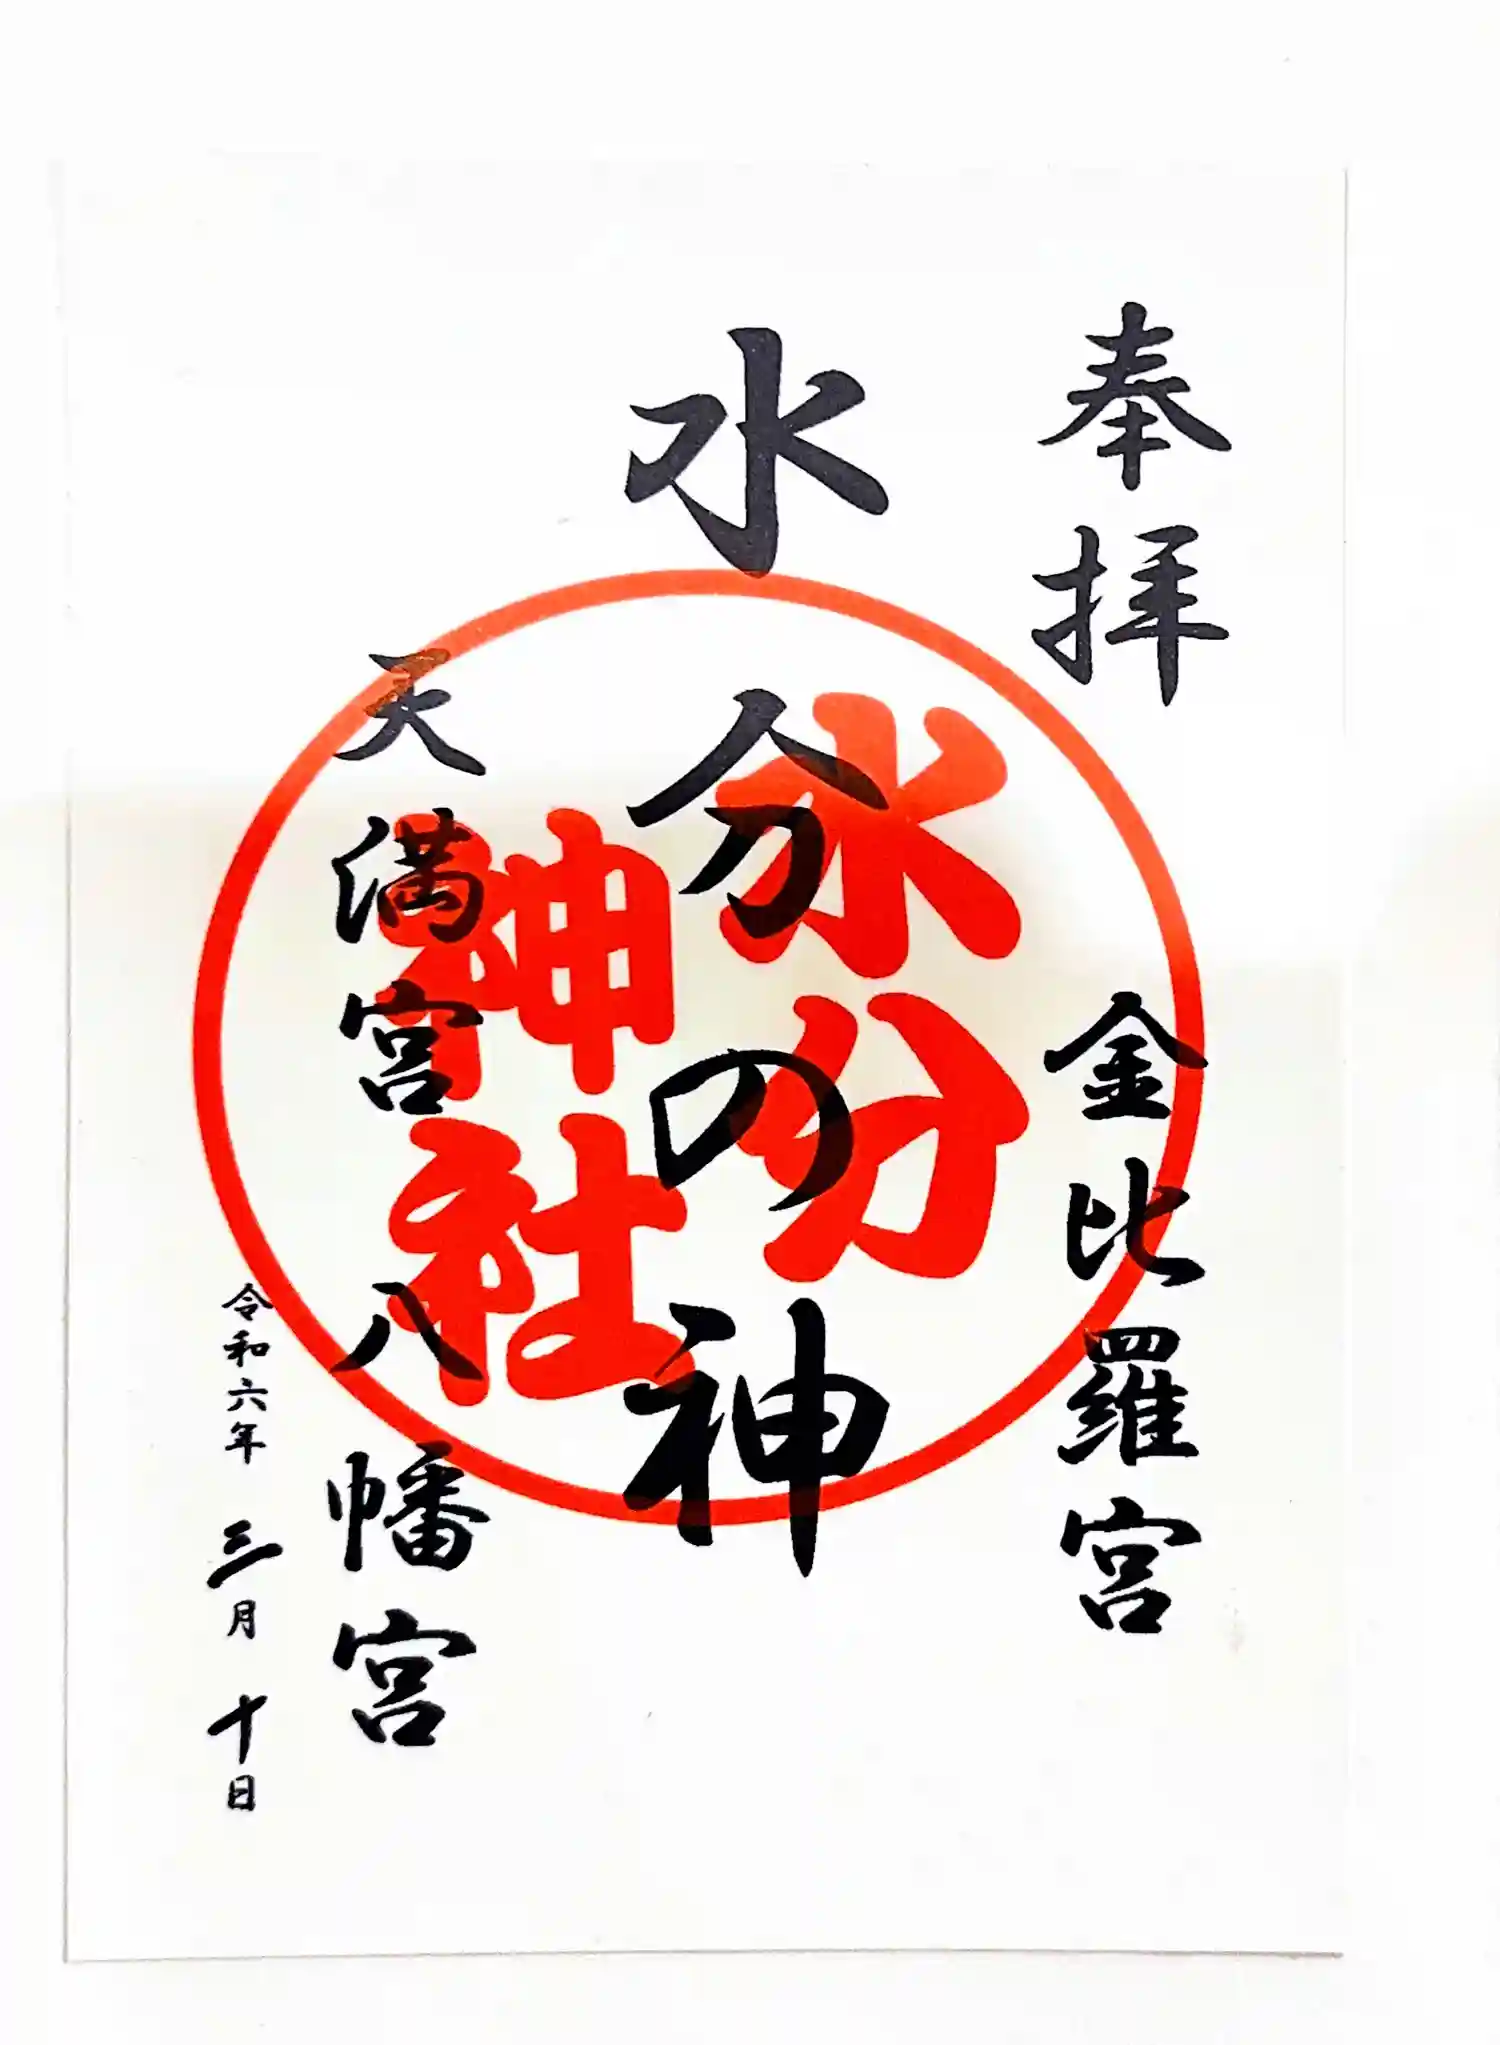 奉拝
金比羅宮
水分の神
水分
神社
天満宮
八幡宮
令和六年 三月 十日